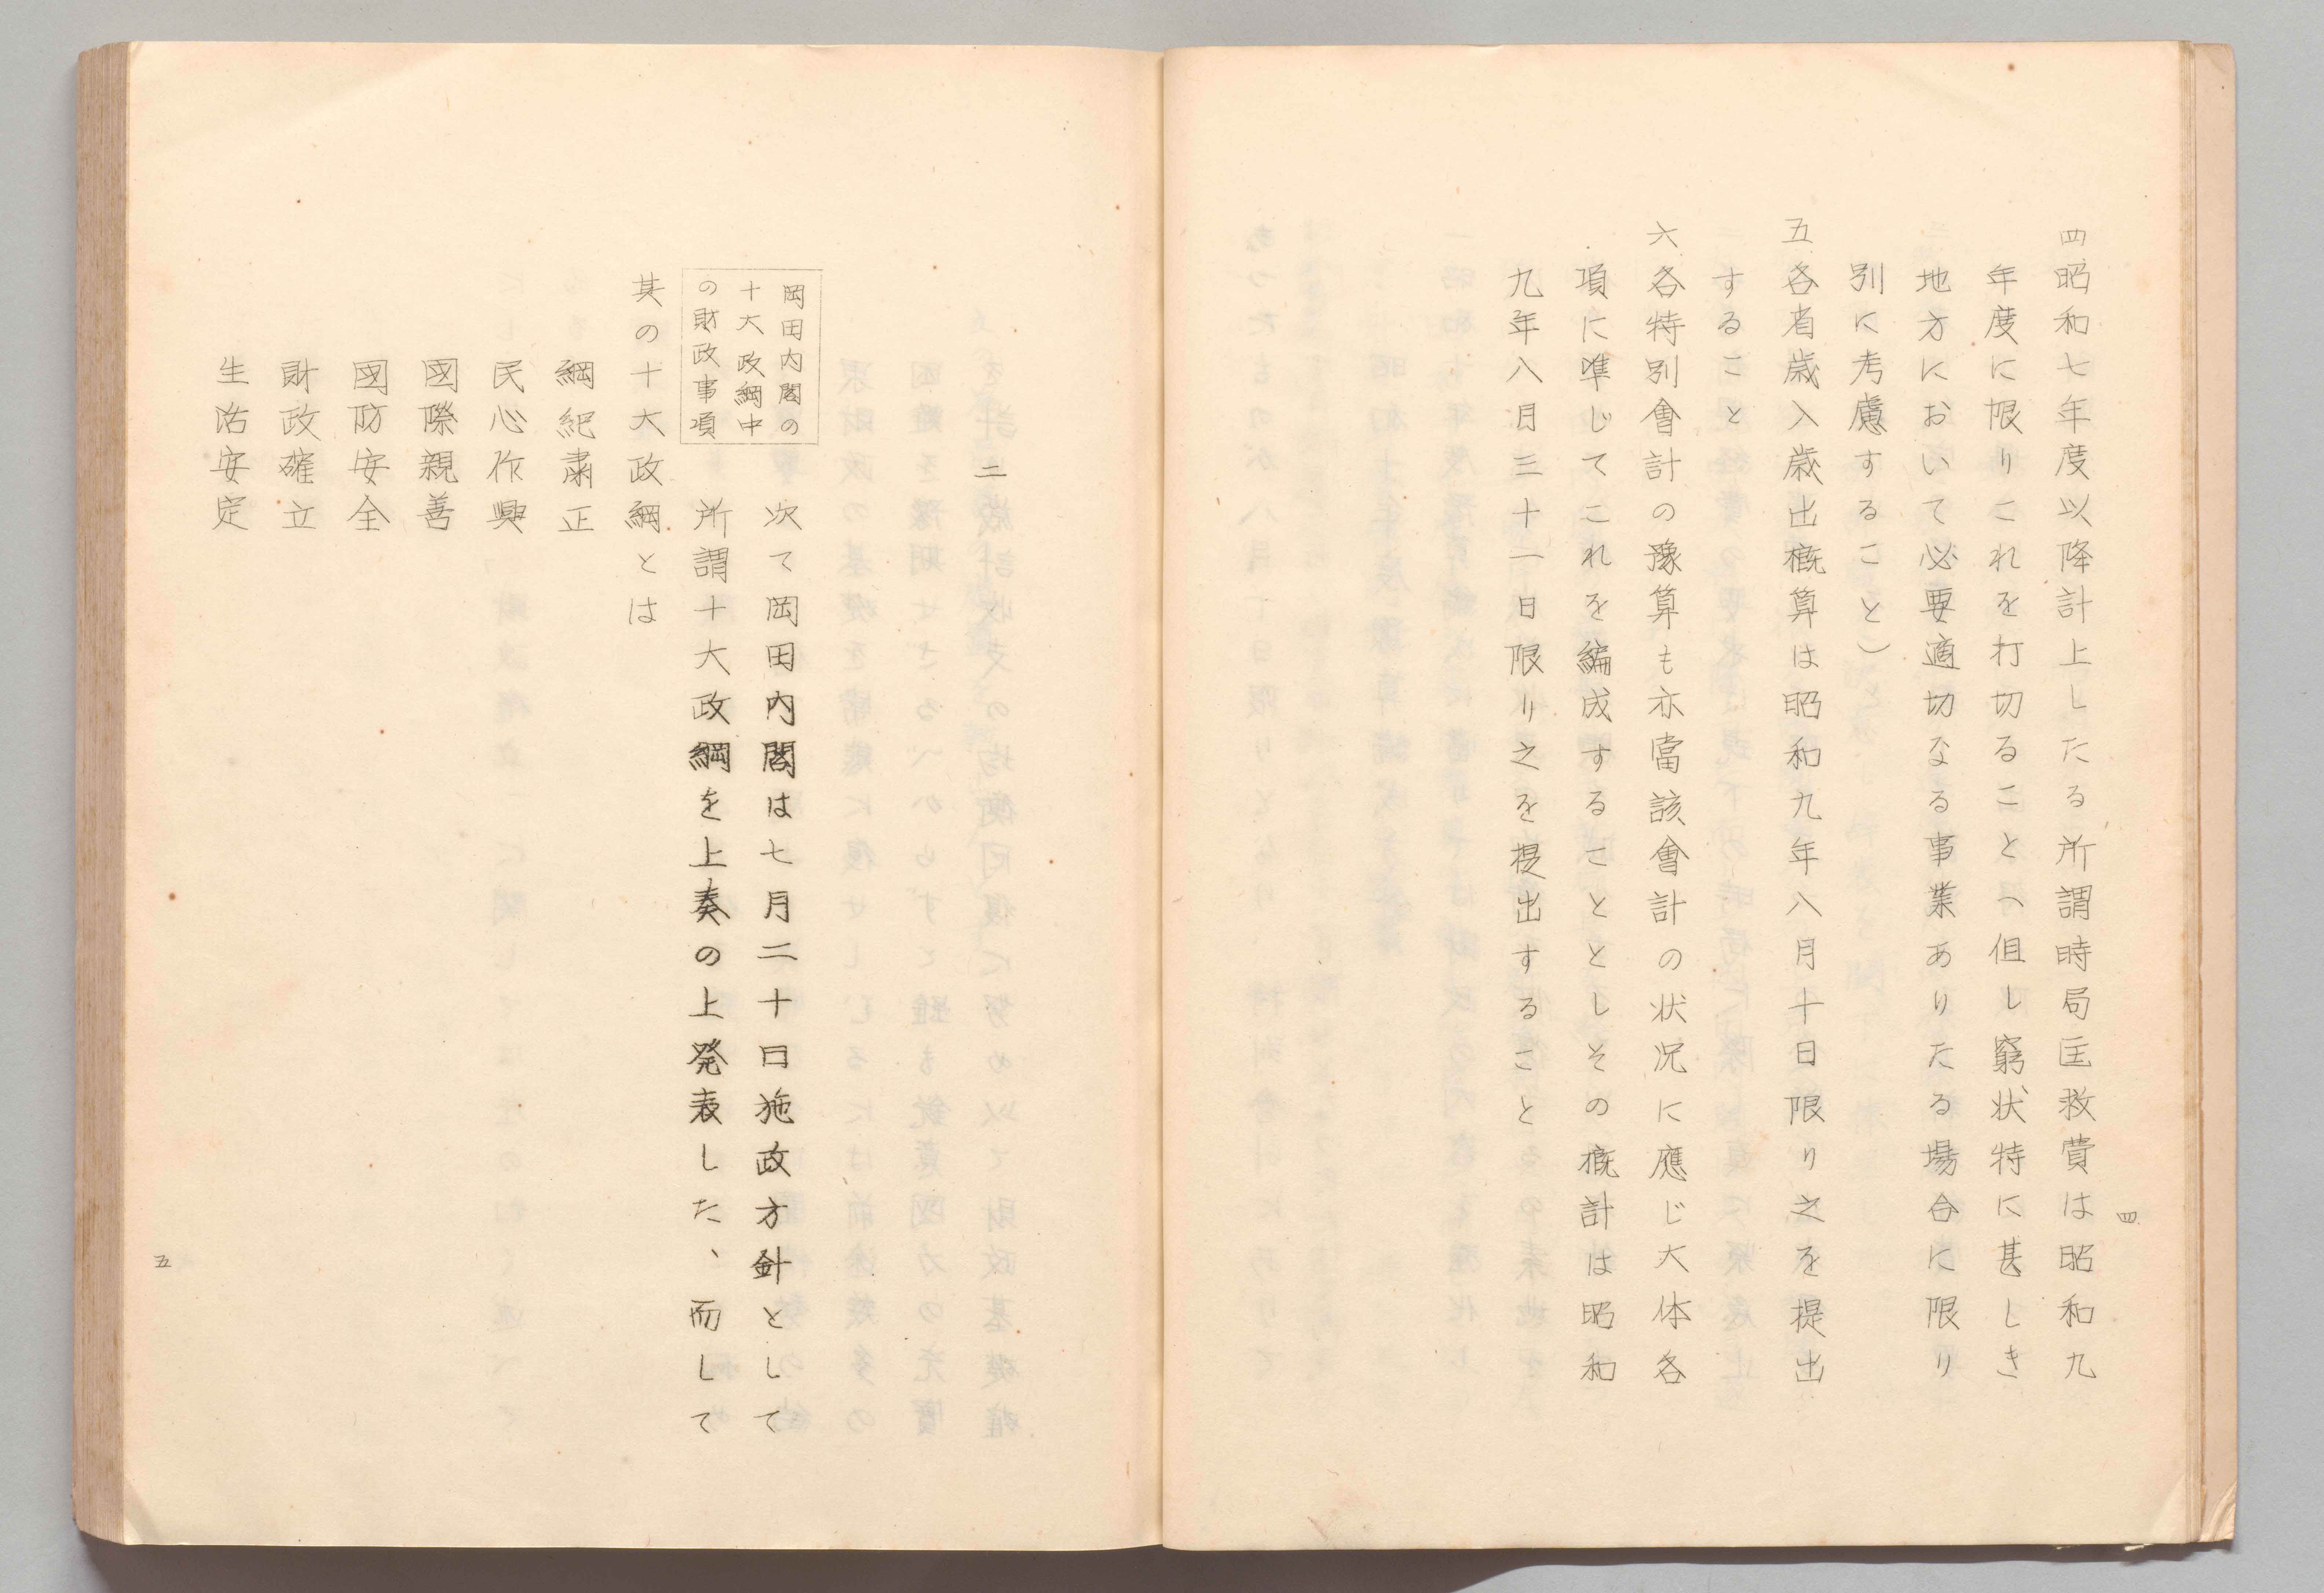 四
四、昭和七年度以降計上したる所謂時局匡救費は昭和九
年度に限りこれを打切ること（但し窮状特に甚しき
地方において必要適切なる事業ありたる場合に限り
別に考慮すること）
五、各省歳入歳出概算は昭和九年八月十日限り之を提出
すること
六、各特別會計の豫算も亦當該會計の状况に應じ大体各
項に準じてこれを編成することとしその概計は昭和
九年八月三十一日限り之を提出すること
二
岡田内閣の
十大政綱中
の財政事項
次て岡田内閣は七月二十日施政方針として
所謂十大政綱を上奏の上発表した、而して
其の十大政綱とは
綱紀粛正
民心作興
國際親善
國防安全
財政確立
生活安定
五